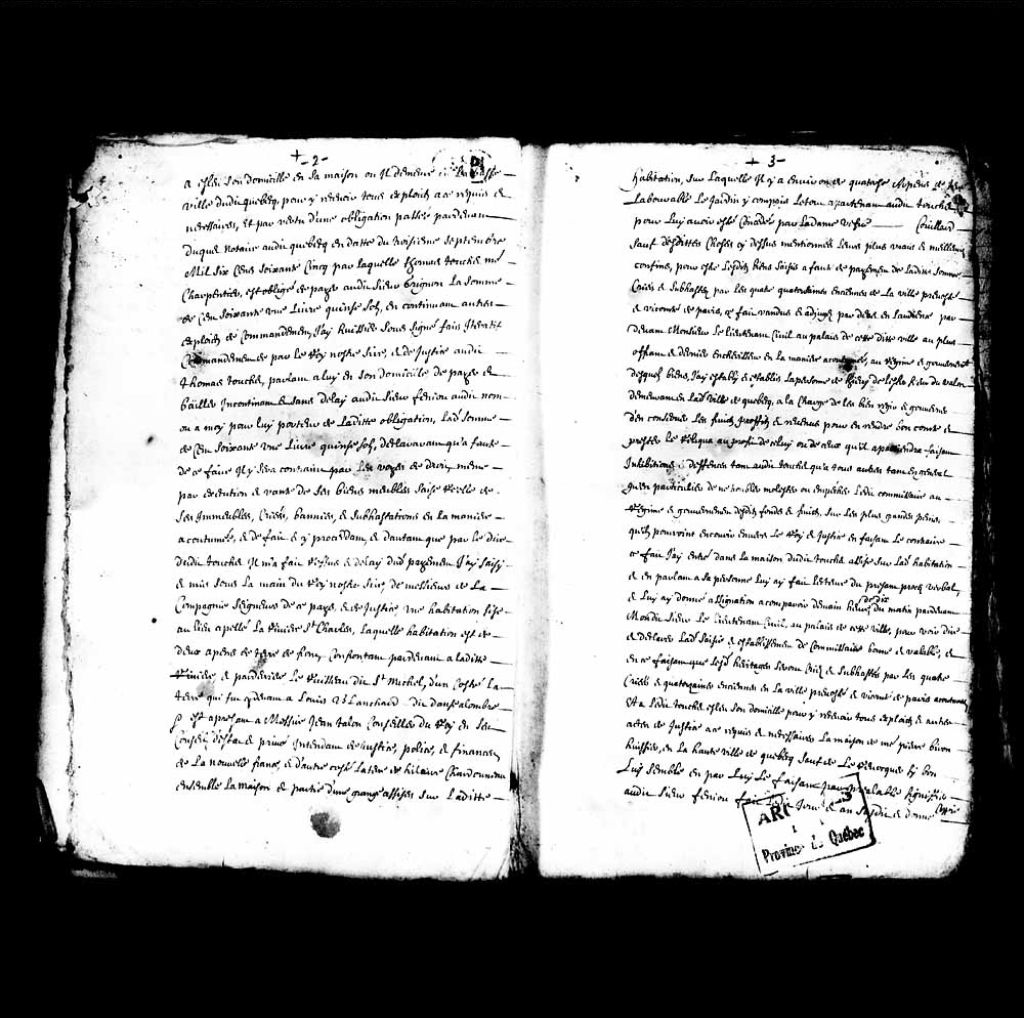 + -2-
a esleu son domicille en sa maison ou Il demeure en la basse
ville dudit quebecq pour y recevoir tous exploits a ce requis &
necessaires, Et par vertu d'une obligation passée pardevant
duquet Notaire audit quebecq en datte du troisieme septembre
Mil six Cens soixante Cinq par laquelle thomas touché me
Charpentier, est obligé de payer audit sieur Grignon La somme
de Cen soixante une Livre quinse sol, en continuant autres
exploits de Commandement, J'ay huissier sous signé fait Iteratif
Commandement de par le Roy nostre sire, & de Justice audit
thomas touché, parlant a luy en son domicille de payer &
bailler Incontinent & sans delay audit sieur feniou audit nom
ou a moy pour luy porteur de Laditte obligation, Lad. somme
de Cen soixante une Livre quinse sol, declarant qu'a faute
de ce faire Il y sera contraint par les voyes de droit, mesme
par execution & vante de ses biens meubles saisie reelle de
ses Immeubles, Criées, bannies, & subhastations en la maniere
acoutumée, & de fait & y procedant, & d'autant que par le dire
dudit touché Il m'a fait refus & delay dud. payement J'ay saisy
& mis sous la main du Roy nostre sire, de messieurs de La
Compagnie seigneurs de ce pays, & de Justice, une habitation sise
au lieu apellé La Riviere St Charles, laquelle habitation est de
deux apens de terre de front, Confrontant pardevant a laditte
Riviere, & parderriere Le Ruisseau dit St Michel, d'un Costé La
terre qui fut cy devant a Louis Blanchard dit dansalombre
& est apresent a Messire Jean talon Conseiller du Roy en ses
Conseils d'estat & privé Intendant de Justice, police, & finances
de La nouvelle france, & d'autre costé La terre de hilaire Chardonneau
ensemble la maison & partie d'une grange assises sur Laditte
+ 3-
habitation, sur Laquelle Il y a environ de quatorse Arpens de terre
Labourable Le Jardin y compris Letout apartenant audit touché
pour Luy avoir esté Concedé par La dame vefve Couillard
sauf desdittes Choses cy dessus mentionnées leurs plus vrais & meilleurs
confins, pour estre Lesdits biens saisis a faute de payement de Ladite somme
Criés & subhastés par les quatre quatorsaines enciennes de La ville prevosté
& viconté de paris, & fait vandus & adjugés par decret en l'audience par
devant Monsieur Le Lieutenant Civil au palais de cette ditte ville au plus
offrant & dernier encherisseur en la maniere acoutumée, au regime & gouvernement
desquels biens, J'ay estably & establis La personne de
demeurant en Lad. ville de quebecq, a la Charge de les bien regir & gouverner
d'en conserver Les fruits proffits & revenus pour en rendre bon conte &
prester le reliqua au profit de celuy ou de ceux qu'il apartiendra faisant
Inhibitions & deffences tant audit touché qu'a tous autres tant en general
qu'en particulier de ne troubler molester ou empescher Ledit commissaire au
Regime & gouvernement desdits fonds & fruits, sur les plus grandes peines,
quels pourroint encourir envers Le Roy & Justice en faisant Le contraire
ce fait J'ay entré dans la maison dudit touché assise sur Lad. habitation
& en parlant a sa personne Luy ay fait lecture du present procès verbal,
& Luy ay donné assignation a comparoir demain heure de dix du matin pardevant
Mondit sieur Le Lieutenant Civil, au palais de cette ville, pour voir dire
& declarer Lad. saisie & establissement de Commissaire bonne & valable, &
en ce faisant que Lesd. heritages seront Criés & subhastés par les quatre
Criées & quatorsaines enciennes en La ville prevosté & viconté de paris acoutumées
Et a Ledit touché esleu son domicille pour y recevoir tous exploits & autres
actes de Justice a ce requis & necessaires La maison de me pierre biron
huissier, en La haute ville de quebecq sauf de Le revocquer sy bon
Luy semble en par Luy Le faisant prealable signiffier
audit sieur feniou fait Lesd. Jour & an susdit & donné Copie
ARC
Province de Québec